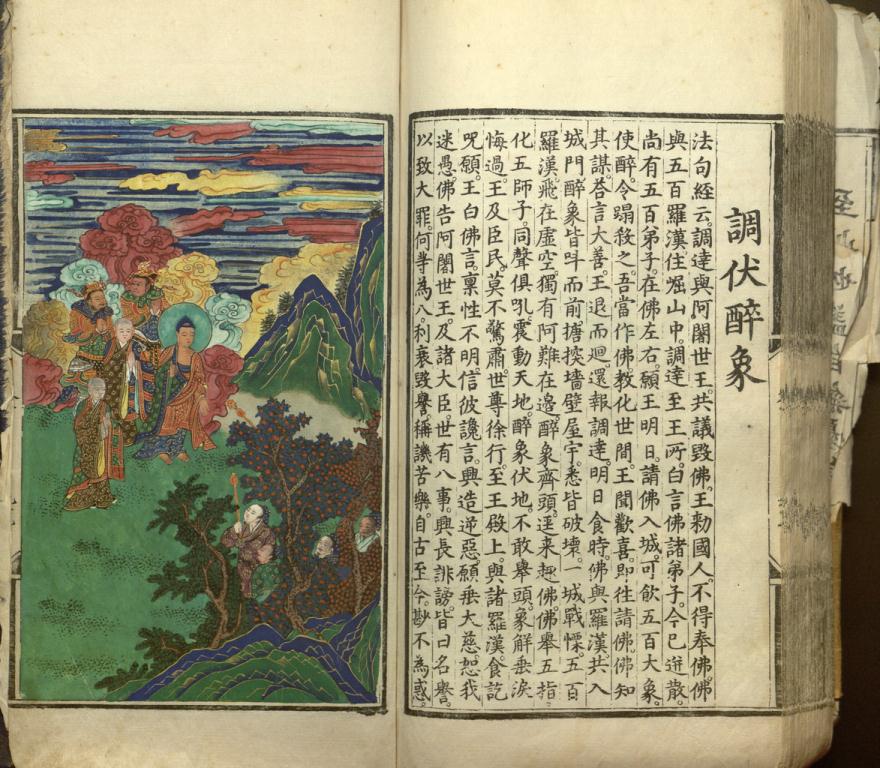 調伏醉象
法句經云。調達與阿闍世王。共議毀佛。王勑國人。不得奉佛。佛
與五百羅漢住崛山中。調達至王所。白言佛諸弟子。今已迸散。
尚有五百弟子。在佛左右。願王明日。請佛入城。可飲五百大象。
使醉。令蹋殺之。吾當作佛。教化世間。王聞歡喜。即往請佛。佛知
其謀。荅言大善。王退而迴。還報調達。明日食時。佛與羅漢共入
城門。醉象皆吽而前。搪揬墻壁屋宇。悉皆破壞。一城戰慄。五百
羅漢。飛在虛空。獨有阿難在邊。醉象齊頭。逕来趣佛。佛舉五指。
化五師子。同聲俱吼。震動天地。醉象伏地。不敢舉頭。象解垂淚
悔過。王及臣民。莫不驚肅。世尊徐行。至王殿上。與諸羅漢。食訖
呪願。王白佛言。稟性不明。信彼讒言。興造逆惡。願垂大慈。恕我
迷愚。佛告阿闍世王。及諸大臣。世有八事。興長誹謗。皆曰名譽。
以致大罪。何等為八。利衰毀譽。稱譏苦樂。自古至今。尠不為惑。